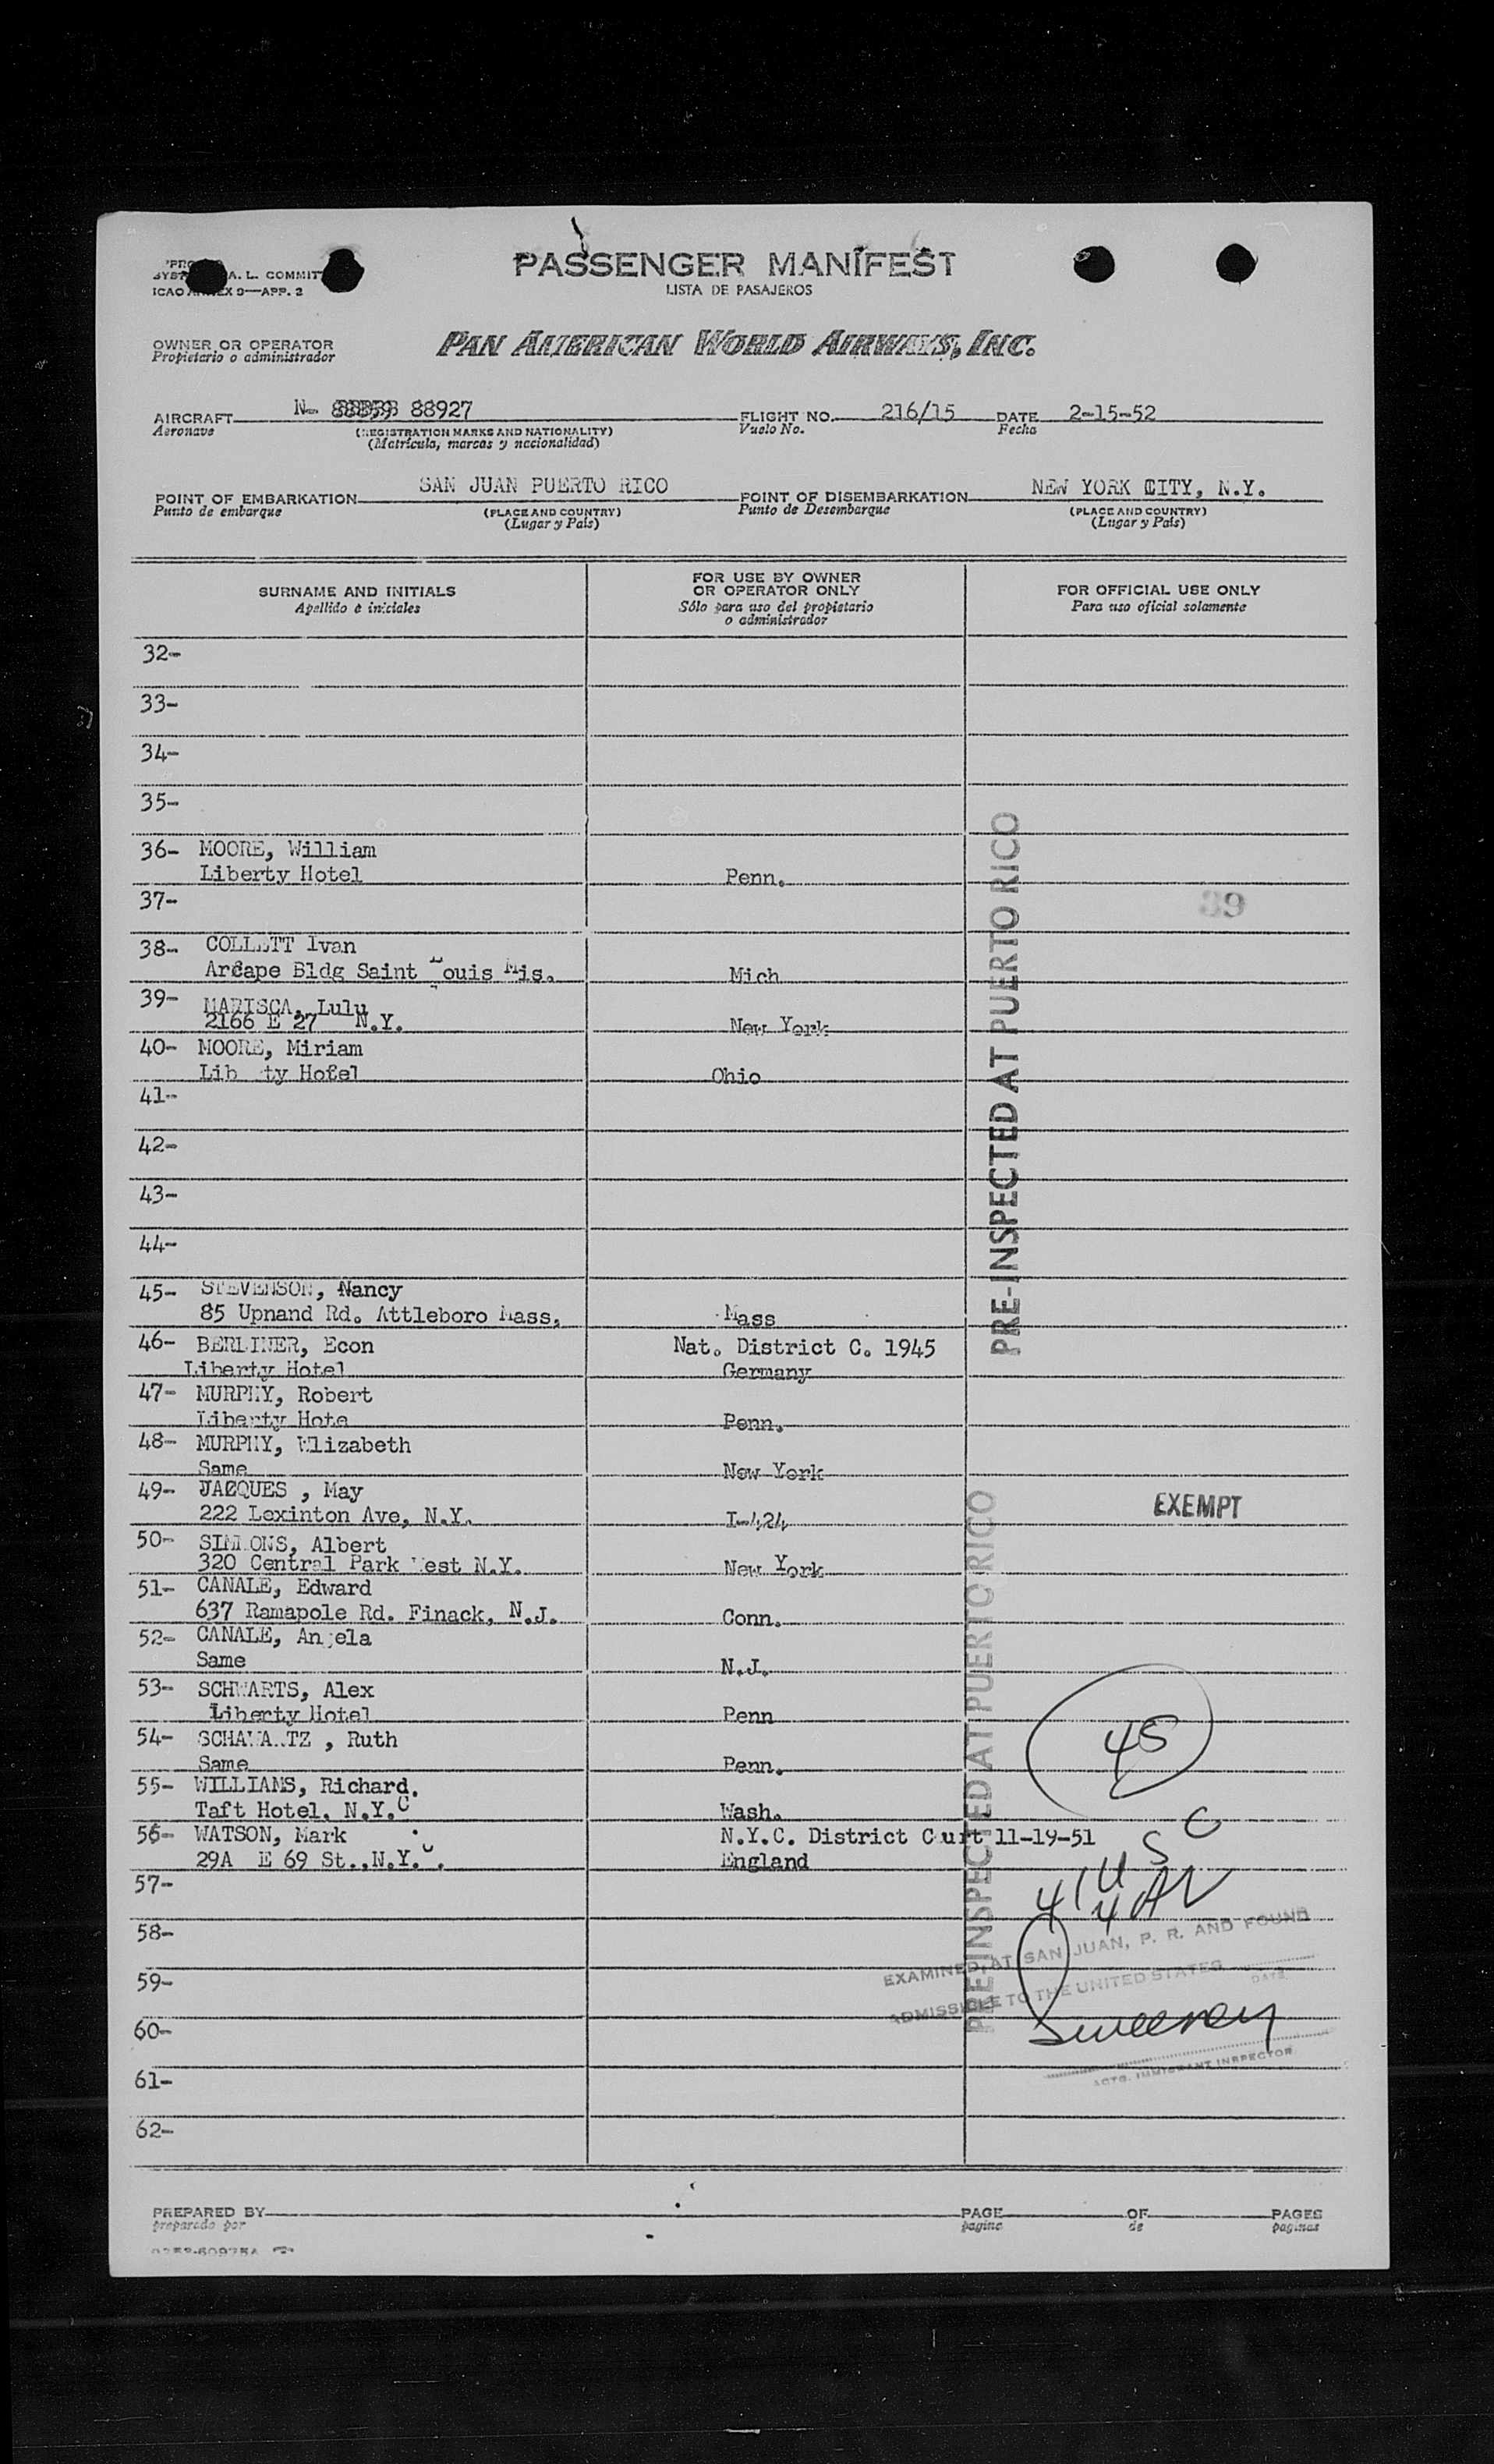 PASSENGER MANIFEST
LISTA DE PASAJEROS
A. L. COMMIT
ICAO ANNEX 9—APP. 2
OWNER OR OPERATOR
Propietario o administrador
PAN AMERICAN WORLD AIRWAYS, INC.
AIRCRAFT N- 88927 FLIGHT NO. 216/15 DATE 2-15-52
Aeronave (REGISTRATION MARKS AND NATIONALITY) Vuelo No. Fecha
(Matrícula, marcas y nacionalidad)
POINT OF EMBARKATION SAN JUAN PUERTO RICO POINT OF DISEMBARKATION NEW YORK CITY, N.Y.
Punto de embarque (PLACE AND COUNTRY) Punto de Desembarque (PLACE AND COUNTRY)
(Lugar y País) (Lugar y País)
SURNAME AND INITIALS
Apellido é iniciales
FOR USE BY OWNER
OR OPERATOR ONLY
Sólo para uso del propietario
o administrador
FOR OFFICIAL USE ONLY
Para uso oficial solamente
32-
33-
34-
35-
36- MOORE, William
Liberty Hotel Penn.
37- 39
38- COLLETT Ivan
Arcape Bldg Saint Louis Mis. Mich
39- MARISCA, Lulu
2166 E 27 N.Y. New York
40- MOORE, Miriam
Lib ty Hotel Ohio
41-
42-
43-
44-
45- STEVENSON, Nancy
85 Upnand Rd. Attleboro Mass. Mass
46- BERLINER, Econ Nat. District C. 1945
Liberty Hotel Germany
47- MURPHY, Robert
Liberty Hote Penn.
48- MURPHY, Wlizabeth
Same New York
49- JACQUES , May
222 Lexinton Ave, N.Y. I-424 EXEMPT
50- SIMMONS, Albert
320 Central Park West N.Y. New York
51- CANALE, Edward
637 Ramapole Rd. Finack, N.J. Conn.
52- CANALE, Angela
Same N.J.
53- SCHWARTS, Alex
Liberty Hotel Penn
54- SCHAWARTZ , Ruth
Same Penn.
55- WILLIAMS, Richard.
Taft Hotel, N.Y.C Wash.
56- WATSON, Mark N.Y.C. District Curt 11-19-51
29A E 69 St.,N.Y.C. England
57-
58-
59-
60-
61-
62-
PRE-INSPECTED AT PUERTO RICO
PRE-INSPECTED AT PUERTO RICO
45
41 USC
4 AV
EXAMINED AT SAN JUAN, P. R. AND FOUND
ADMISSIBLE TO THE UNITED STATES DATE
Sweeney
ACTG. IMMIGRANT INSPECTOR
PREPARED BY PAGE OF PAGES
preparado por pagina de paginas